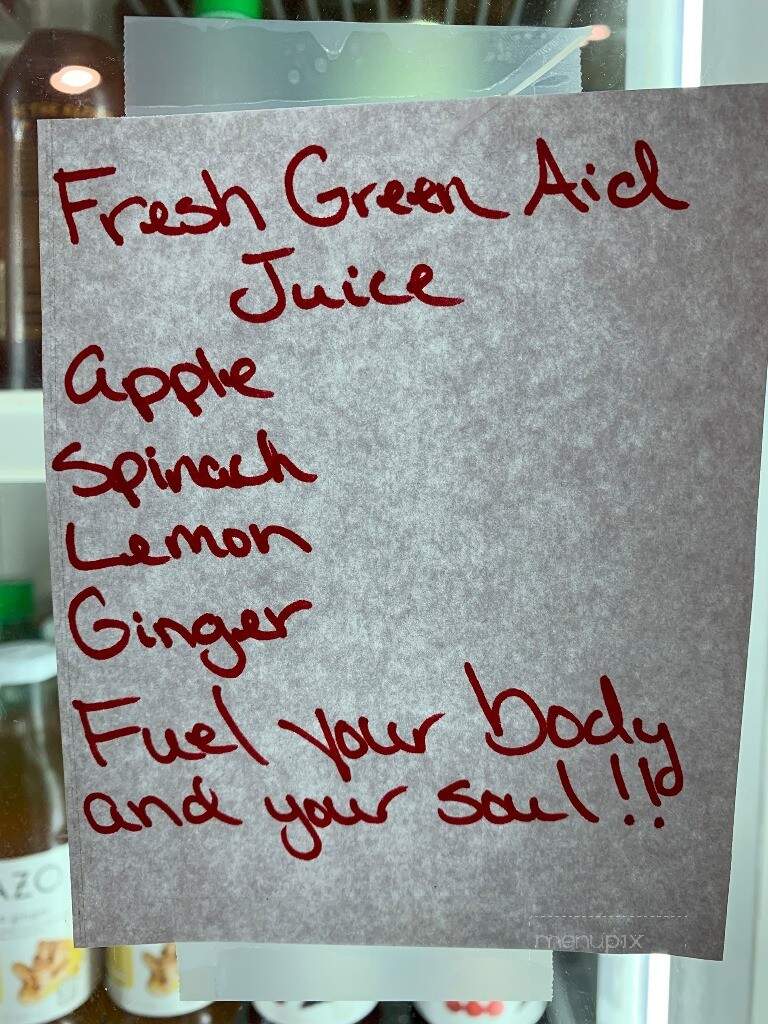 Fresh Green Aid
Juice
Apple
Spinach
Lemon
Ginger
Fuel your body
and your soul!!
menupix
AZO